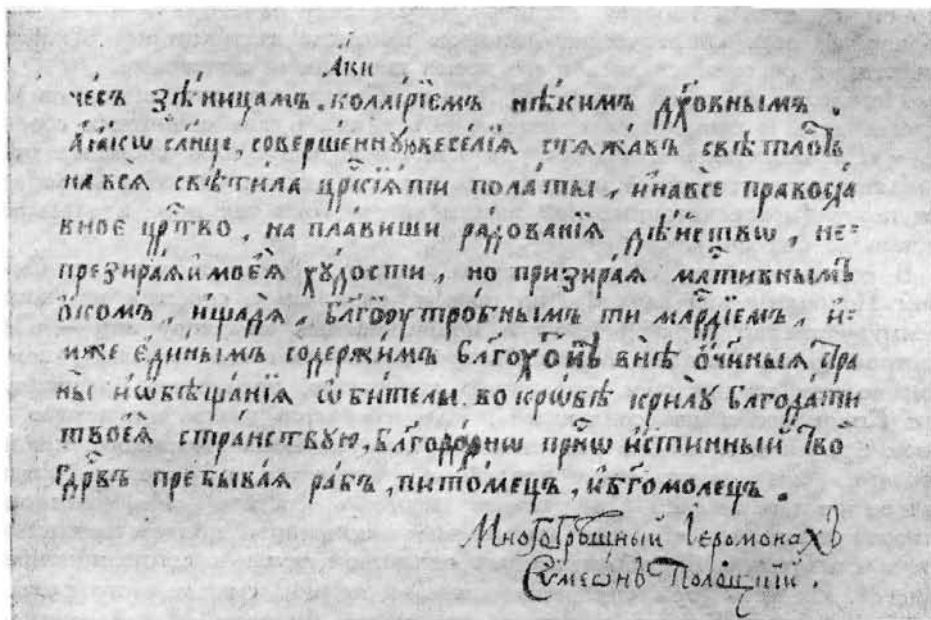 Аки
чесъ зѣницамъ. коллѵ́рїемъ нѣкимъ дх҃овнымъ.
Аїакѡ сл҃нце, совершеннꙋю веселїѧ стѧжавъ свѣтлость
на всѧ свѣтила црⷭ҇кїѧ ти полаты, и на все правосла
вное црⷭ҇тво, на радованїѧ не=
презираѧ и моеѧ хꙋдости, но призираѧ млⷭ҇тивнымъ
окомъ, и щадѧ, бл҃гоꙋтробнымъ ти млⷭ҇рдїемъ, и=
иже единымъ содержимъ внѣ ѻч҃иныѧ стра
ны и ѡбѣщанїѧ ѡбители. во кровѣ крилꙋ благодати
твоеѧ странствꙋю, истинный Твоегѡ
пребываѧ рабъ, питомецъ, и бг҃омолецъ.
Многогрѣшный Іеромонахъ
Сѵмеѡнъ Полоцкїй.